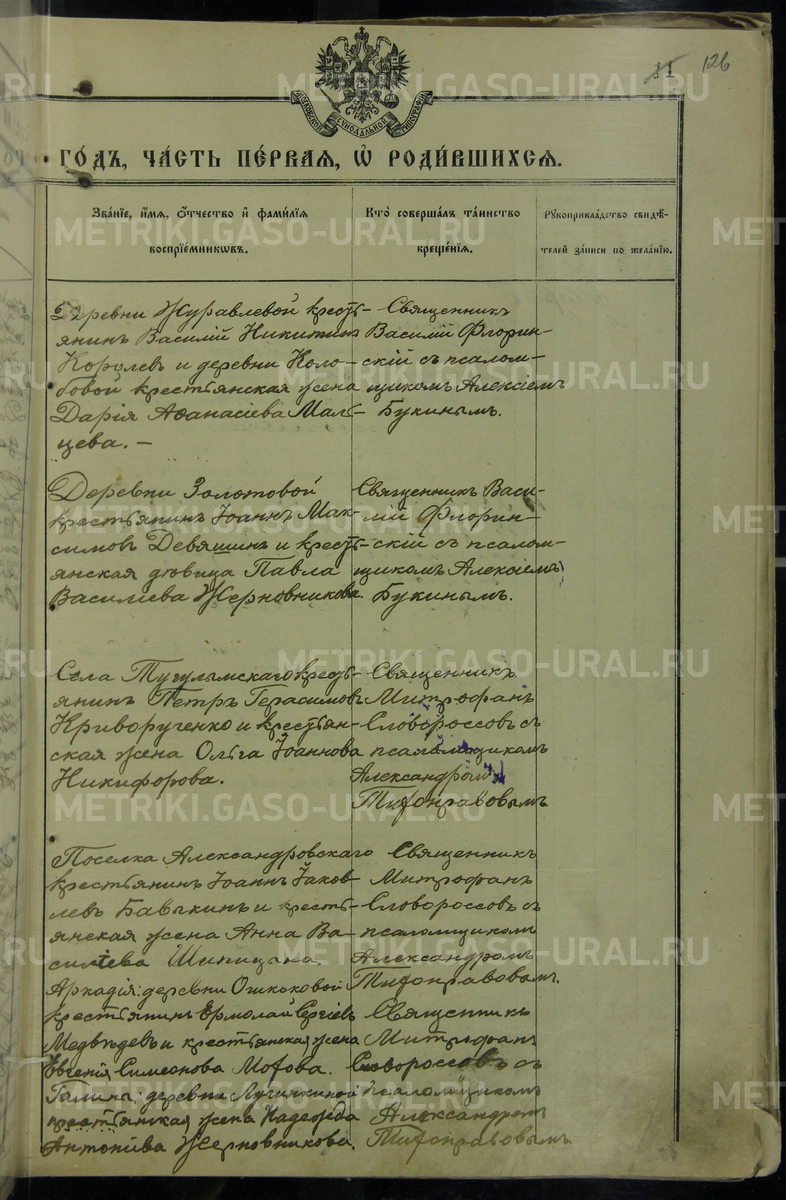 11 126
МОСКОВСКОЙ СУНОДАЛЬНОЙ ТИПОГРАФІИ
ГО́ДЪ, ЧА́СТЬ ПЕ́РВАЯ, Ѡ҆ РОДИ́ВШИХСЯ.
Зва́нїе, и҆́мя, ѻ҆́тчество и҆ фами́лїя
воспрїе́мникѡвъ.
Кто̀ соверша́лъ та́инство
креще́нїя.
Рꙋкоприкла́дство свидѣ́-
телей за́писи по жела́нїю.
Деревни Журавлевой кресть-
янинъ Василій Никитинъ
Королевъ и деревни Коло-
бовой крестьянская жена
Дарія Аѳанасіева Маль-
цева. —
Священникъ
Василій Флорин-
скій съ псалом-
щикомъ Алексіемъ
Букинымъ.
Деревни Золотовой
крестьянинъ Іоаннъ Мак-
симовъ Девяшинъ и кресть-
янская дѣвица Павла
Василiева Жерновникова.
Священникъ Васи-
лій Флорин-
скій съ псалом-
щикомъ Алексіемъ
Букинымъ.
Села Тугулымскаго кресть-
янинъ Петръ Герасимовъ
Криворученко и крестьян-
ская жена Ольга Іоаннова
Никифорова.
Священникъ
Митрофанъ
Словороссовъ съ
псаломщикомъ
Александромъ
Тихонравовымъ
Поселка Александровскаго
крестьянинъ Іоаннъ Іаков-
левъ Бабыкинъ и кресть-
янская жена Анна Ва-
силіева Шипицына.
Священникъ
Митрофанъ
Словороссовъ съ
псаломщикомъ
Александромъ
Тихонравовымъ.
Аркадія: деревни Ошкуковой
крестьянинъ Ермолай Сергіевъ
Медвѣдевъ и крестьянская жена
Евгенія Симеонова Мотова.
Галины: деревни Лучинкиной
крестьянская жена Надежда
Антонiева Жерновникова.
Священникъ
Митрофанъ
Словороссовъ съ
псаломщикомъ
Александромъ
Тихонравовымъ
METRIKI.GASO-URAL.RU